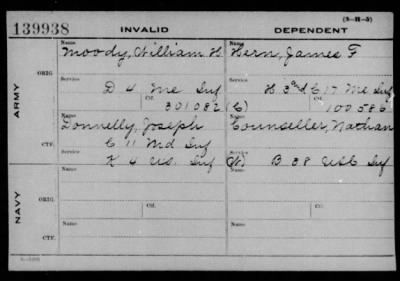 (3-21-5)
139938 INVALID DEPENDENT
Name Name
Moody, William H Hern, James F
ARMY
ORIG.
Service Service
D 4 Me Inf H 3rd & 17 Me Inf
Ctf. Ctf.
301082 (C) 100586
Name Name
Donnelly, Joseph Counseller, Nathan
CTF.
C 11 Md Inf
Service Service
K 4 US. Inf (W) B 38 USC Inf
NAVY
Name Name
ORIG.
Ctf. Ctf.
Name Name
CTF.